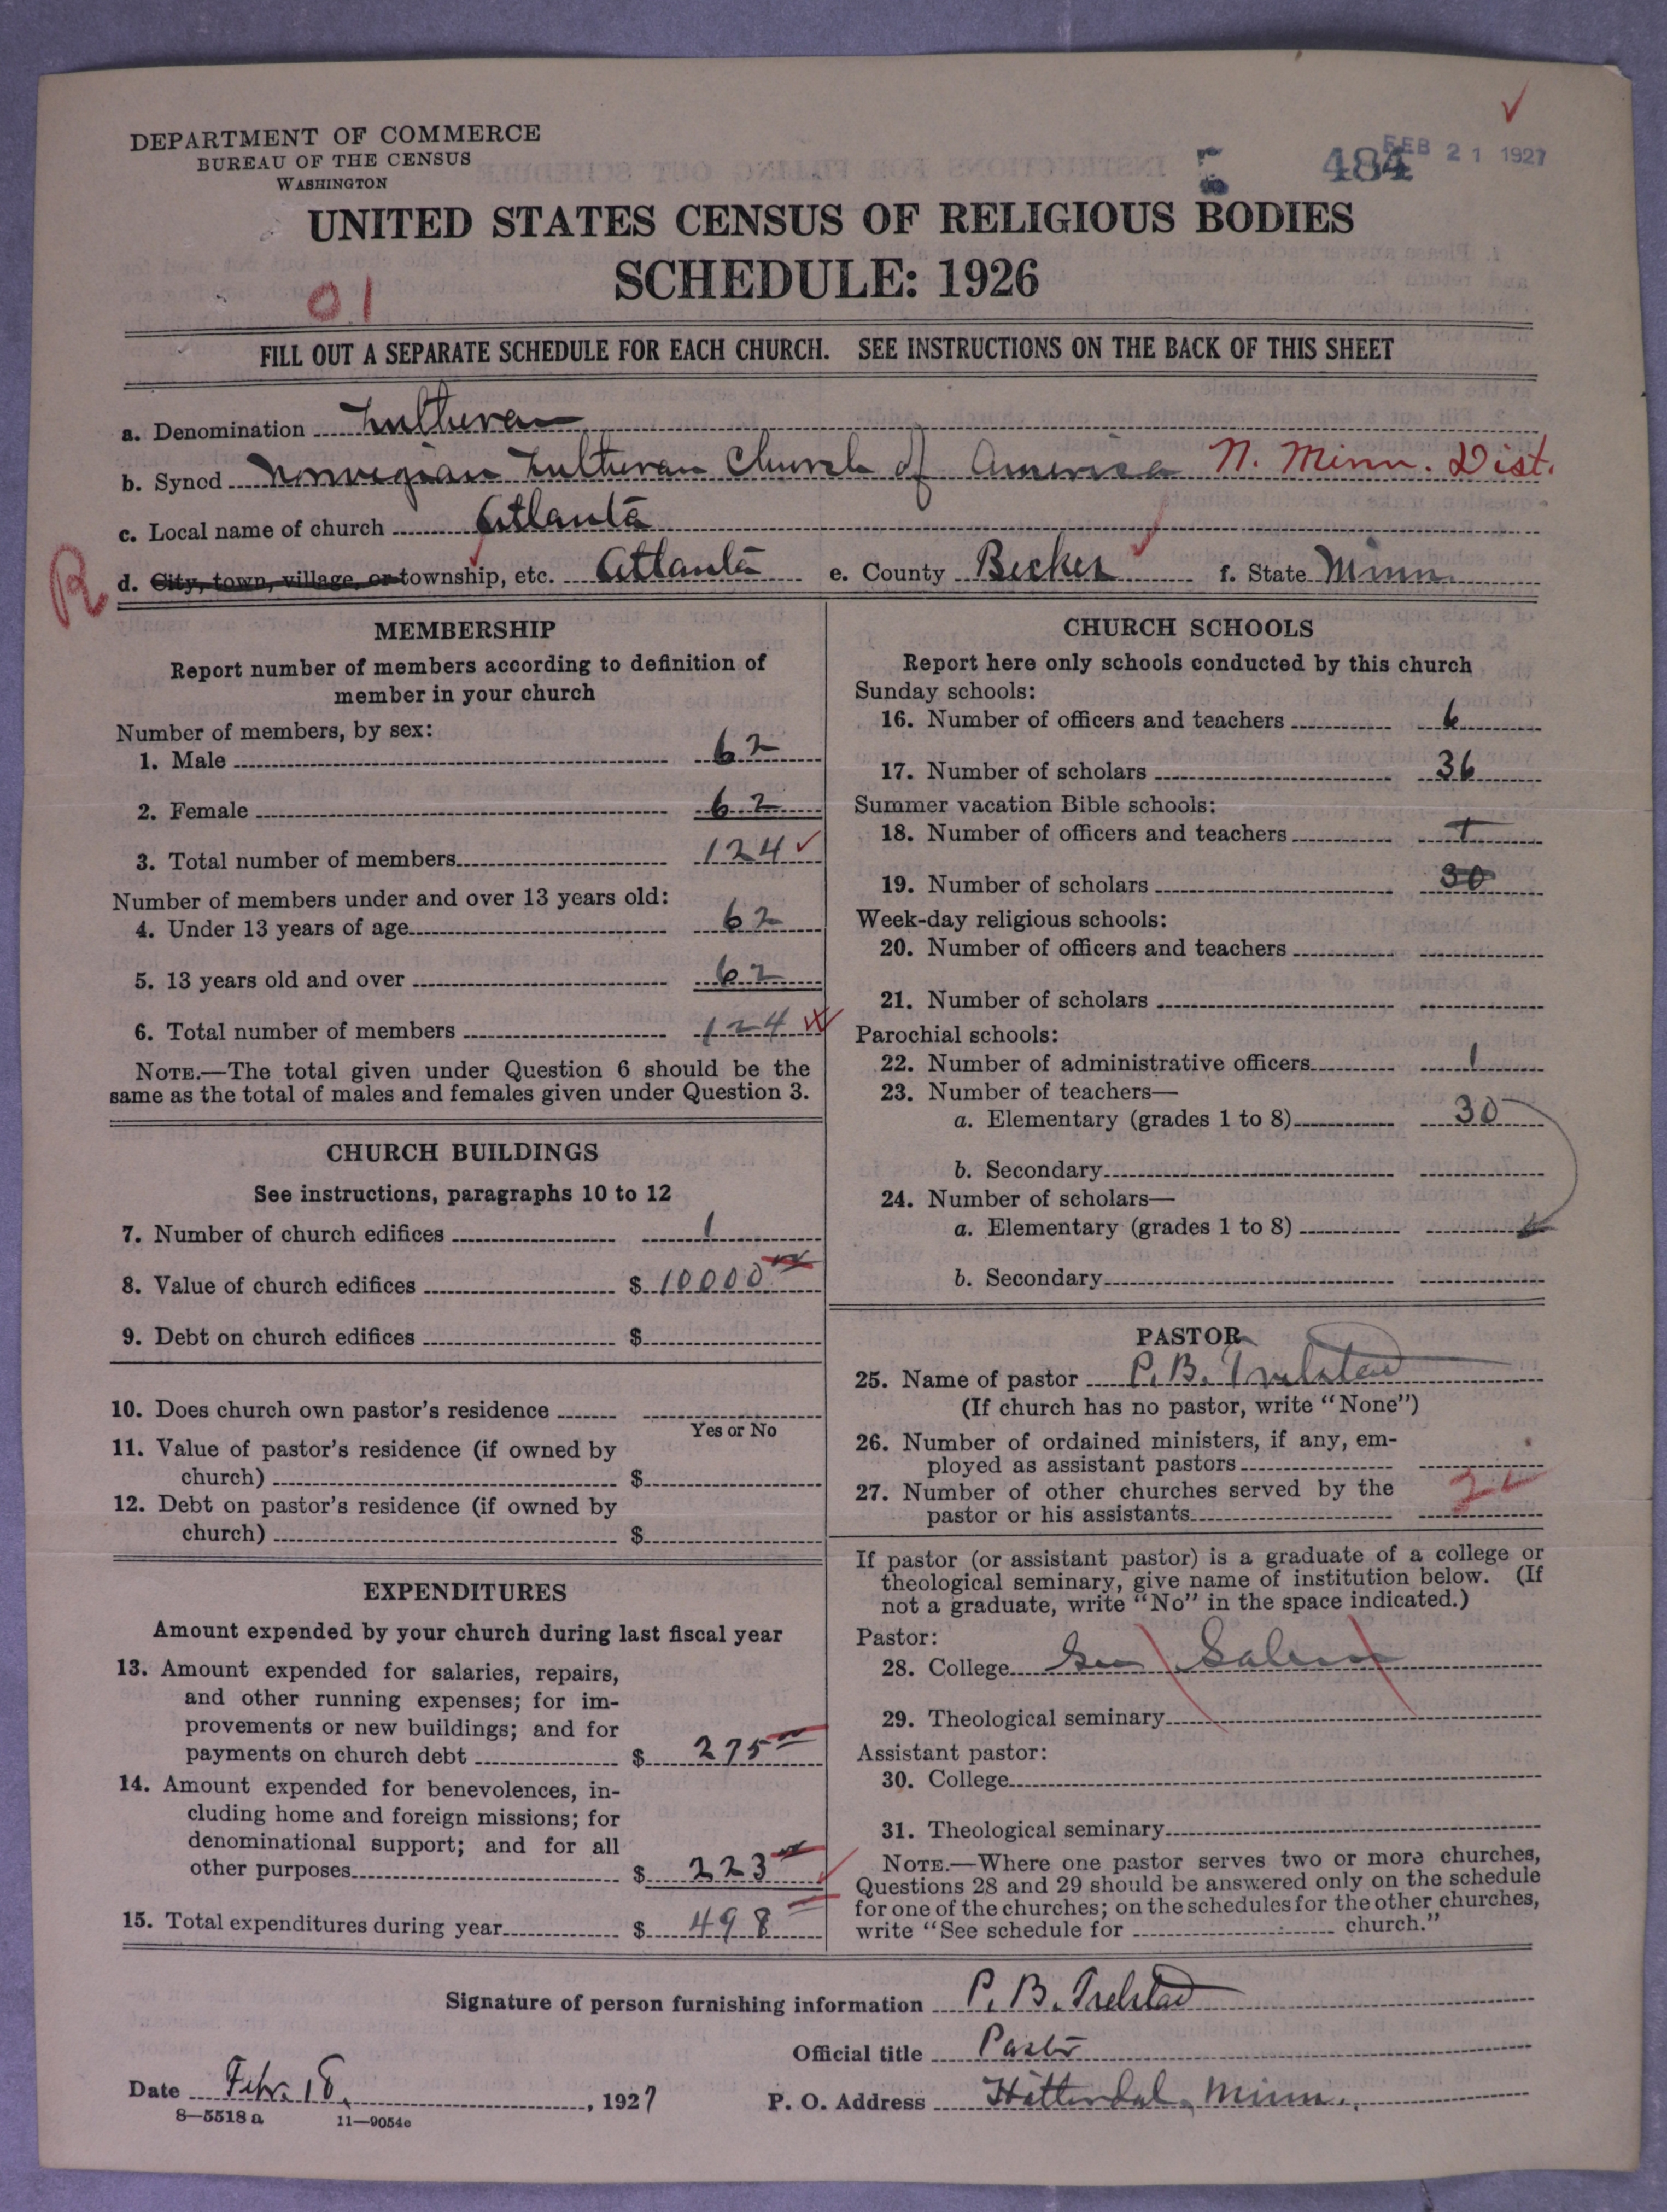 DEPARTMENT OF COMMERCE
BUREAU OF THE CENSUS
WASHINGTON
484
FEB 21 1927
UNITED STATES CENSUS OF RELIGIOUS BODIES
SCHEDULE: 1926
01
FILL OUT A SEPARATE SCHEDULE FOR EACH CHURCH. SEE INSTRUCTIONS ON THE BACK OF THIS SHEET
a. Denomination Lutheran
b. Synod Norwegian Lutheran Church of America N. Minn. Dist.
c. Local name of church Atlanta
R
d. City, town, village, or township, etc. Atlanta e. County Becker f. State Minn.
MEMBERSHIP
Report number of members according to definition of
member in your church
Number of members, by sex:
1. Male 62
2. Female 62
3. Total number of members 124
Number of members under and over 13 years old:
4. Under 13 years of age 62
5. 13 years old and over 62
6. Total number of members 124
NOTE.—The total given under Question 6 should be the
same as the total of males and females given under Question 3.
CHURCH BUILDINGS
See instructions, paragraphs 10 to 12
7. Number of church edifices 1
8. Value of church edifices $ 10000
9. Debt on church edifices $
10. Does church own pastor's residence
Yes or No
11. Value of pastor's residence (if owned by
church) $
12. Debt on pastor's residence (if owned by
church) $
EXPENDITURES
Amount expended by your church during last fiscal year
13. Amount expended for salaries, repairs,
and other running expenses; for im-
provements or new buildings; and for
payments on church debt $ 275
14. Amount expended for benevolences, in-
cluding home and foreign missions; for
denominational support; and for all
other purposes $ 223
15. Total expenditures during year $ 498
CHURCH SCHOOLS
Report here only schools conducted by this church
Sunday schools:
16. Number of officers and teachers 6
17. Number of scholars 36
Summer vacation Bible schools:
18. Number of officers and teachers 1
19. Number of scholars 30
Week-day religious schools:
20. Number of officers and teachers
21. Number of scholars
Parochial schools:
22. Number of administrative officers 1
23. Number of teachers—
a. Elementary (grades 1 to 8) 30
b. Secondary
24. Number of scholars—
a. Elementary (grades 1 to 8)
b. Secondary
PASTOR
25. Name of pastor P. B. Trelstad
(If church has no pastor, write "None")
26. Number of ordained ministers, if any, em-
ployed as assistant pastors
27. Number of other churches served by the
pastor or his assistants 2
If pastor (or assistant pastor) is a graduate of a college or
theological seminary, give name of institution below. (If
not a graduate, write "No" in the space indicated.)
Pastor:
28. College See Salem
29. Theological seminary
Assistant pastor:
30. College
31. Theological seminary
NOTE.—Where one pastor serves two or more churches,
Questions 28 and 29 should be answered only on the schedule
for one of the churches; on the schedules for the other churches,
write "See schedule for church."
Signature of person furnishing information P. B. Trelstad
Official title Pastor
Date Febr. 18, 1927 P. O. Address Hitterdal, Minn.
8—5518 a 11—9054c